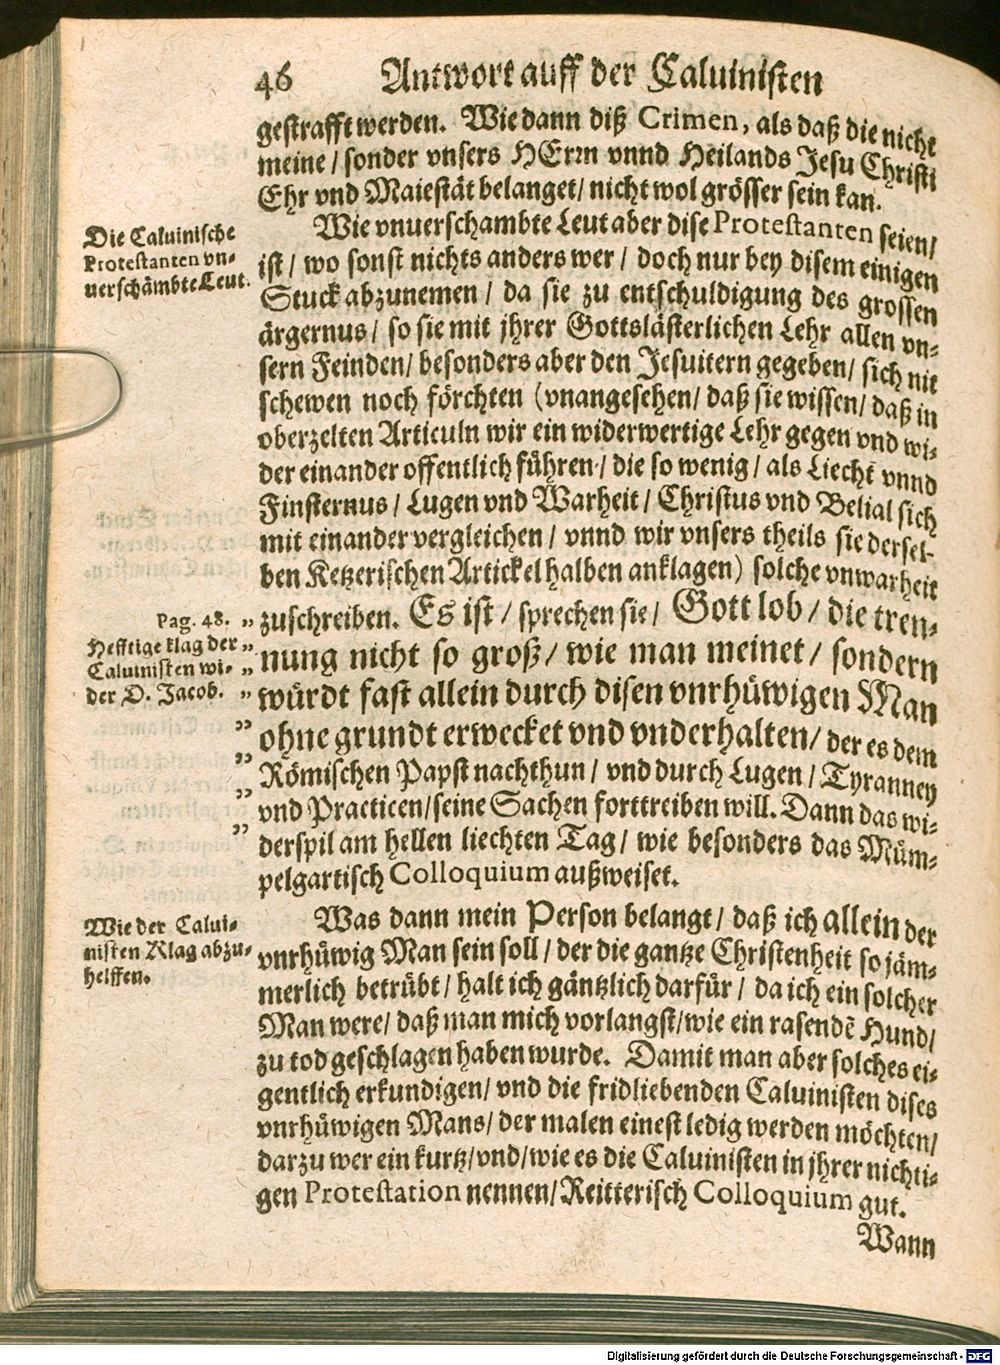 46 Antwort auff der Caluinisten
gestrafft werden. Wie dann diß Crimen, als daß die nicht
meine / sonder vnsers HErrn vnnd Heilands Jesu Christi
Ehr vnd Maiestät belanget / nicht wol grösser sein kan.
Die Caluinische
Protestanten vn-
uerschämbte Leut.
Wie vnuerschambte Leut aber dise Protestanten seien /
ist / wo sonst nichts anders wer / doch nur bey disem einigen
Stuck abzunemen / da sie zu entschuldigung des grossen
ärgernus / so sie mit jhrer Gottslästerlichen Lehr allen vn-
sern Feinden / besonders aber den Jesuitern gegeben / sich nit
schewen noch förchten (vnangesehen / daß sie wissen / daß in
oberzelten Articuln wir ein widerwertige Lehr gegen vnd wi-
der einander offentlich führen / die so wenig / als Liecht vnnd
Finsternus / Lugen vnd Warheit / Christus vnd Belial sich
mit einander vergleichen / vnnd wir vnsers theils sie dersel-
ben Ketzerischen Artickel halben anklagen) solche vnwarheit
Pag. 48.
Hefftige klag der
Caluinisten wi-
der D. Jacob.
„ zuschreiben. Es ist / sprechen sie / Gott lob / die tren-
„ nung nicht so groß / wie man meinet / sondern
„ würdt fast allein durch disen vnrhüwigen Man
„ ohne grundt erwecket vnd vnderhalten / der es dem
„ Römischen Papst nachthun / vnd durch Lugen / Tyranney
„ vnd Practicen / seine Sachen forttreiben will. Dann das wi-
„ derspil am hellen liechten Tag / wie besonders das Müm-
pelgartisch Colloquium außweiset.
Wie der Calui-
nisten Klag abzu-
helffen.
Was dann mein Person belangt / daß ich allein der
vnrhüwig Man sein soll / der die gantze Christenheit so jäm-
merlich betrübt / halt ich gäntzlich darfür / da ich ein solcher
Man were / daß man mich vorlangst / wie ein rasendē Hund /
zu tod geschlagen haben wurde. Damit man aber solches ei-
gentlich erkundigen / vnd die fridliebenden Caluinisten dises
vnrhüwigen Mans / der malen einest ledig werden möchten /
darzu wer ein kurtz / vnd / wie es die Caluinisten in jhrer nichti-
gen Protestation nennen / Reitterisch Colloquium gut.
Wann
Digitalisierung gefördert durch die Deutsche Forschungsgemeinschaft - DFG